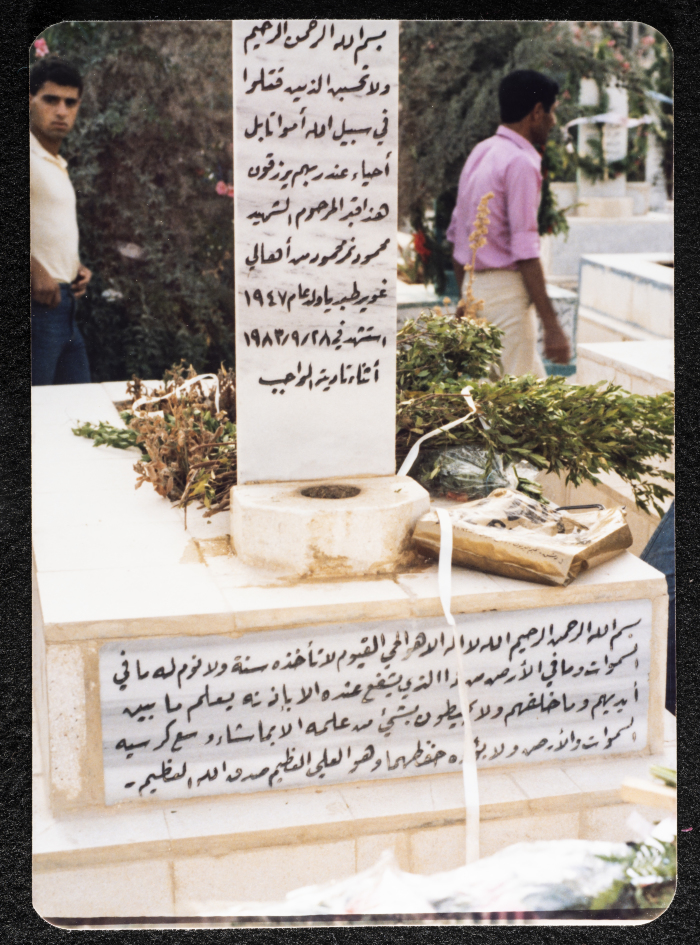 بسم الله الرحمن الرحيم
ولا تحسبن الذين قتلوا
في سبيل الله أمواتا بل
أحياء عند ربهم يرزقون
هذا قبر المرحوم الشهيد
محمود نمر محمود من أهالي
غوير طبريا ولد عام ١٩٤٧
استشهد في ٢٨/٩/١٩٨٣
أثناء تادية الواجب
بسم الله الرحمن الرحيم الله لا اله الا هو الحي القيوم لا تأخذه سنة ولا نوم له ما في
السموات وما في الأرض من ذا الذي يشفع عنده الا بإذنه يعلم ما بين
أيديهم وما خلفهم ولا يحيطون بشيء من علمه الا بما شاء وسع كرسيه
السموات والأرض ولا يؤده حفظهما وهو العلي العظيم صدق الله العظيم -